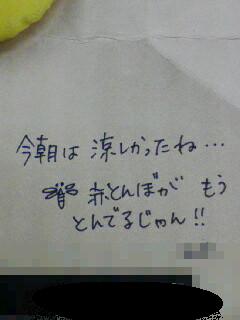 今朝は涼しかったね…
赤とんぼがもう
とんでるじゃん!!